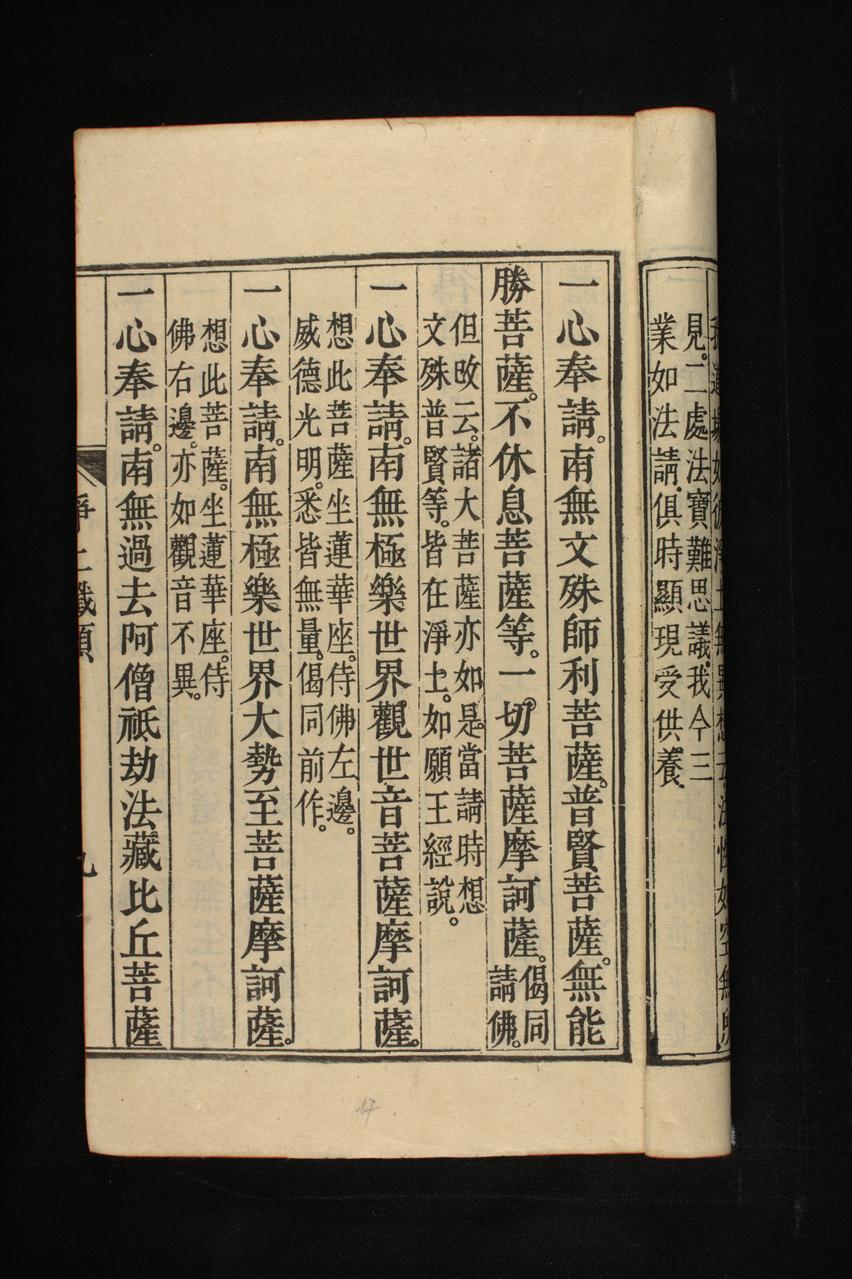 道場如彼淨土無異想云法性如空無
見。二處法寶難思議。我今三
業如法請。俱時顯現受供養。
一心奉請。南無文殊師利菩薩。普賢菩薩。無能
勝菩薩。不休息菩薩等。一切菩薩摩訶薩。偈同
請佛。
但改云。諸大菩薩亦如是。當請時想
文殊普賢等。皆在淨土。如願王經說。
一心奉請。南無極樂世界觀世音菩薩摩訶薩。
想此菩薩坐蓮華座。侍佛左邊。
威德光明。悉皆無量。偈同前作。
一心奉請。南無極樂世界大勢至菩薩摩訶薩。
想此菩薩。坐蓮華座。侍
佛右邊。亦如觀音不異。
一心奉請。南無過去阿僧祇劫法藏比丘菩薩
淨土懺願
九
17